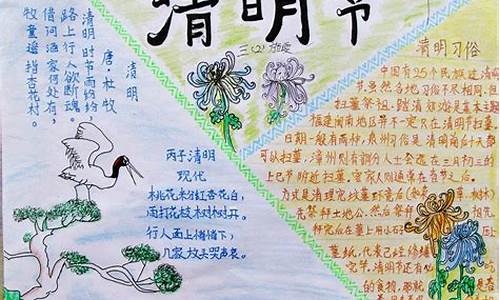 清明节
三(2)
清明
唐·杜牧
清明时节雨纷纷，
路上行人欲断魂。
借问酒家何处有，
牧童遥指杏花村。
丙子清明
现代
桃花米粉红杏花白，
雨打花枝树树开。
行人面上情情下，
几家放头哭声哀。
清明习俗
中国有25个民族过清明
节，虽然各地习俗不尽相同，但
扫墓祭祖、踏清郊游是基本主
福建闽南地区并不一定只在清明节扫墓
日期一般有两种，泉州习俗是清明前后十天都
可以扫墓，漳州则有部分人士会选在三月初三的
上巳节附近扫墓，客家人则通常在春节之后。
方式是清理完坟墓环境后
先祭拜土地公，然后祭拜
拜完后在墓上用小石
董纸，代表已经修缮
完毕。清明节还有吃
的食物，那就